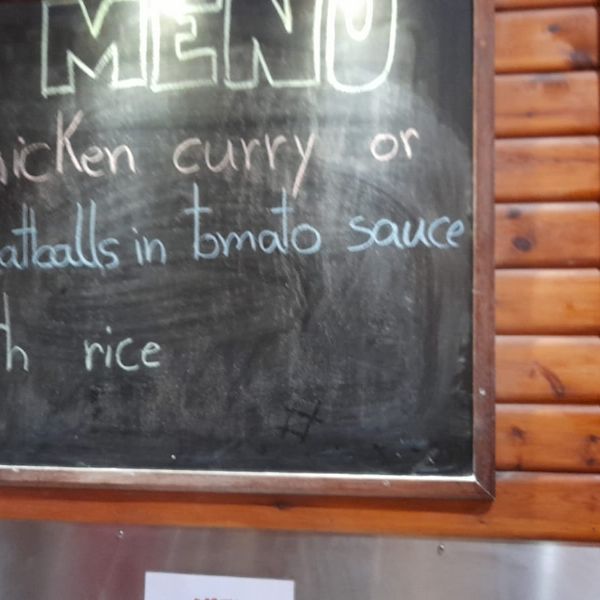 MENU
hicken curry or
atballs in tomato sauce
th rice
#